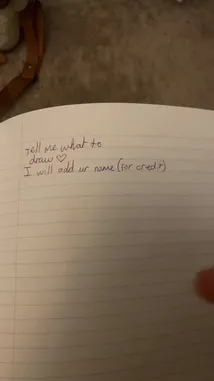 Tell me what to
draw ♡
I will add ur name (for credit)